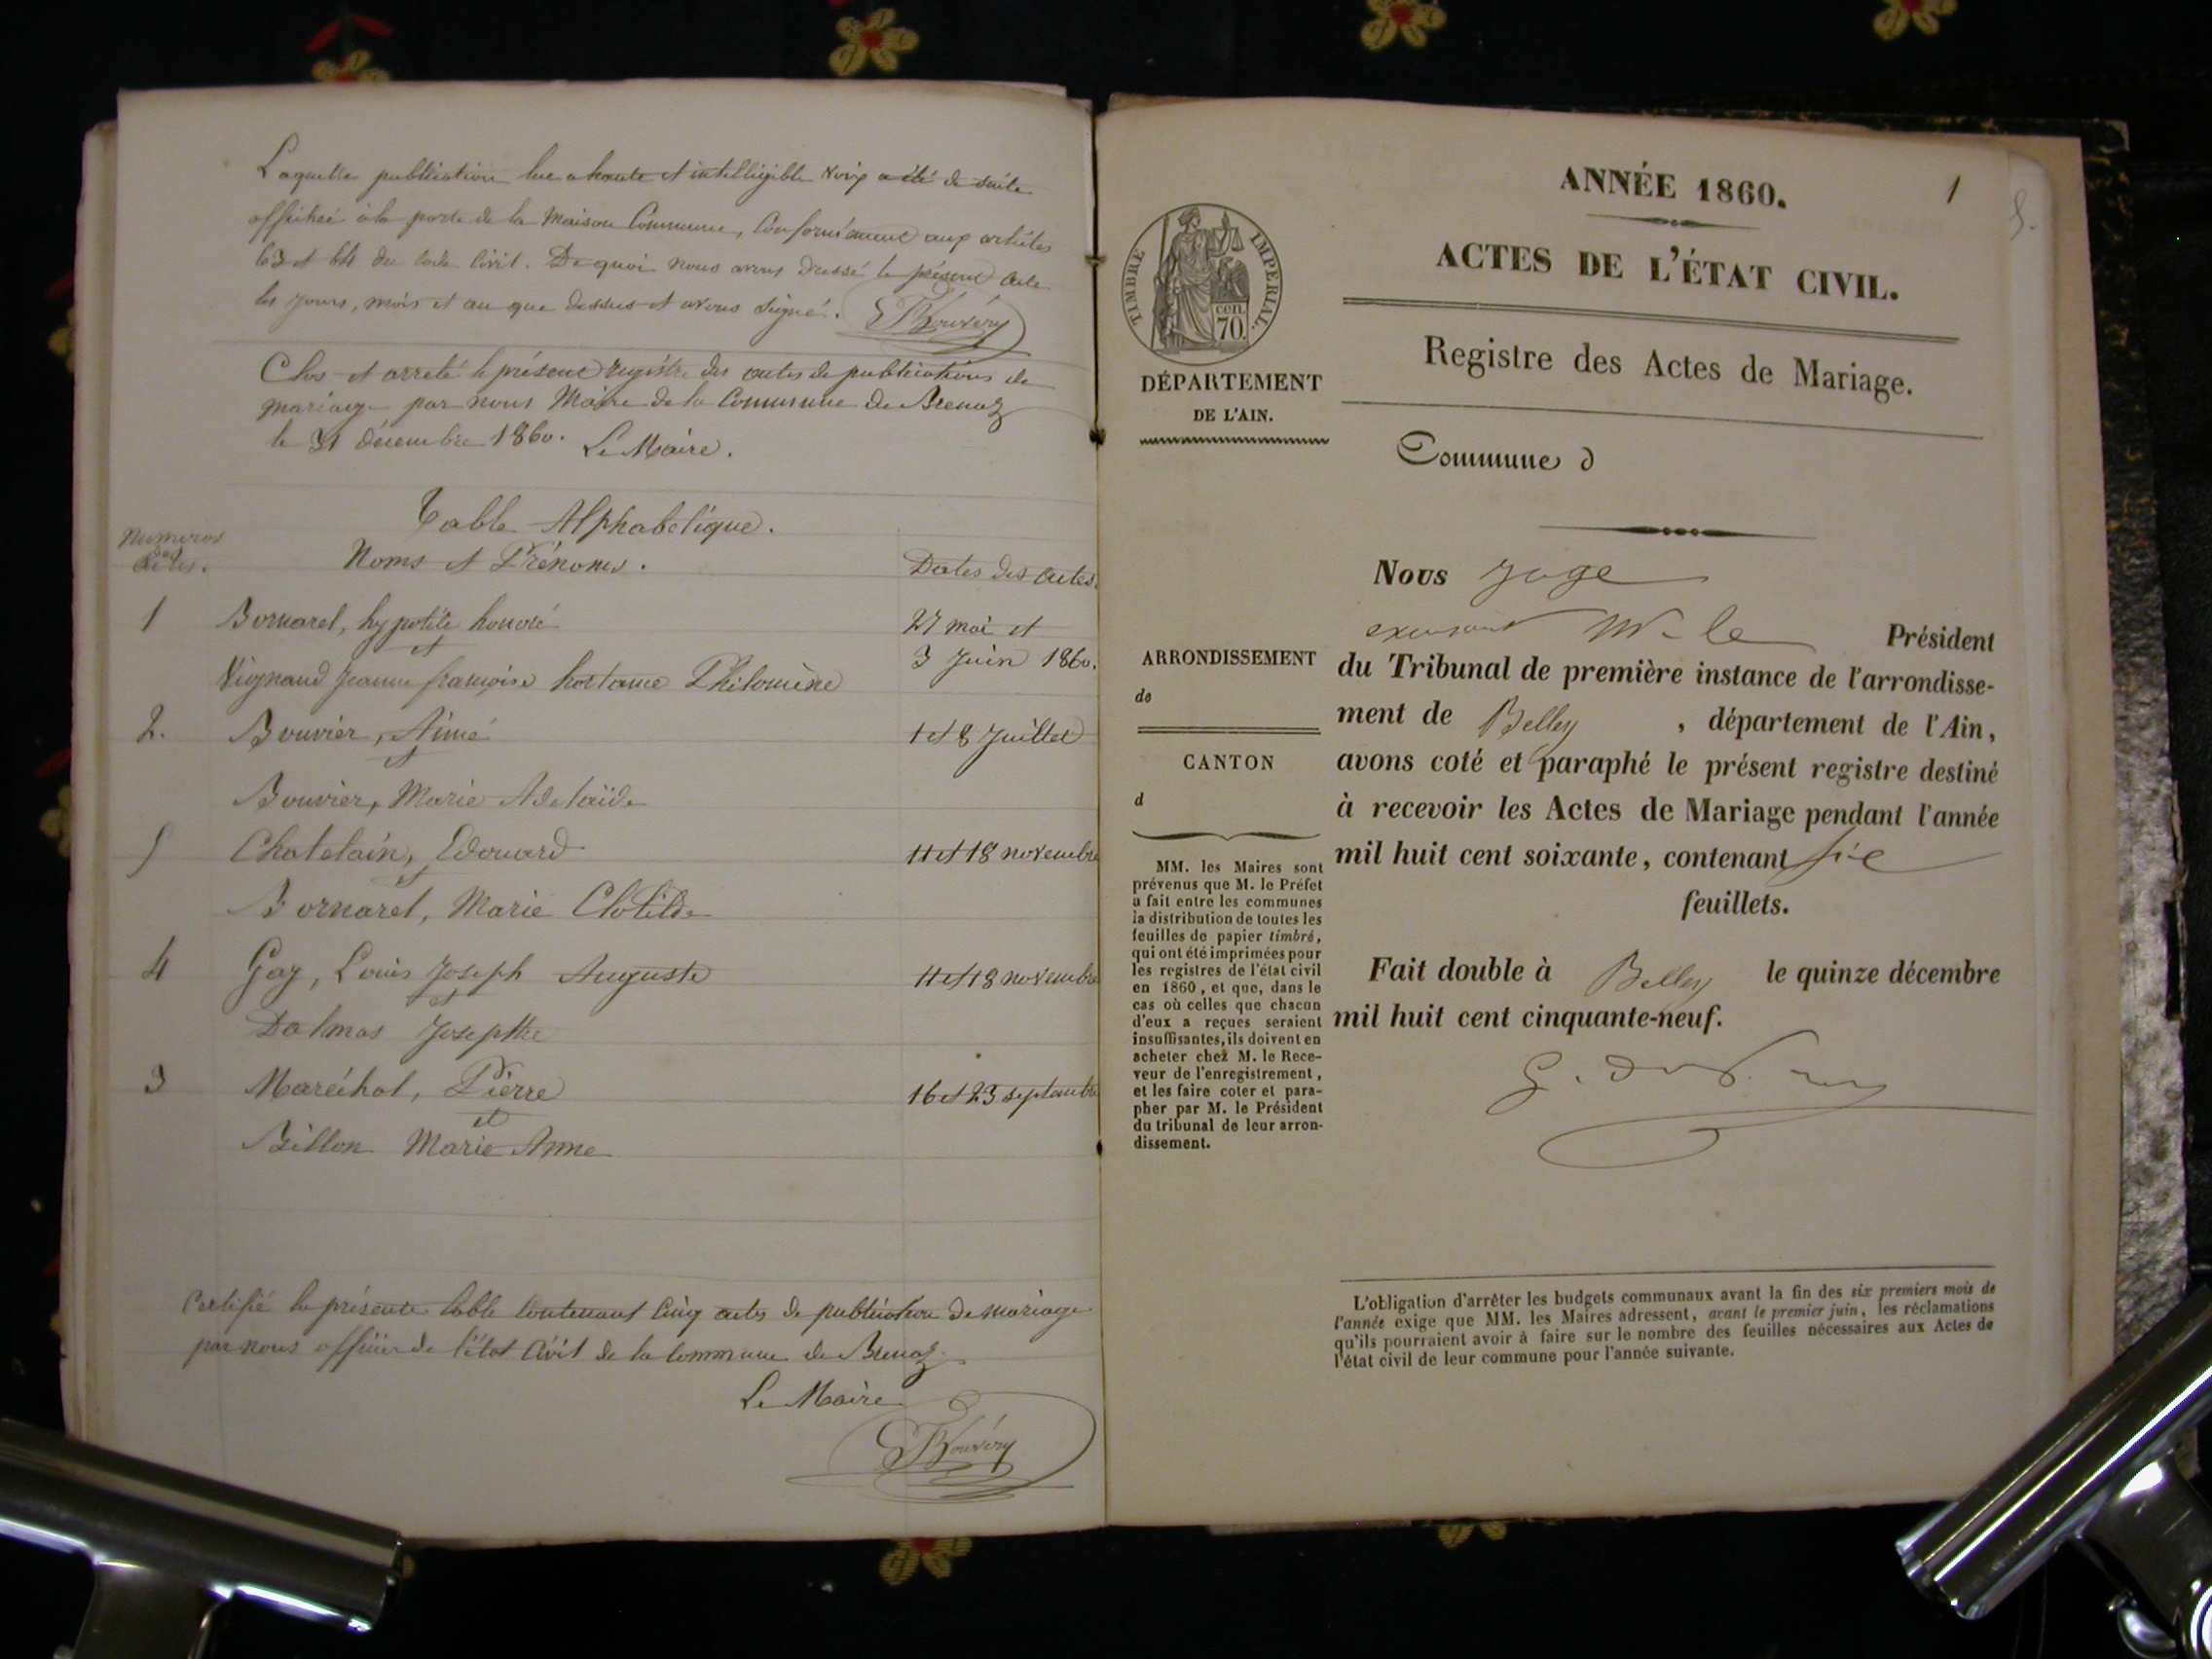 Laquelle publication lue a haute et intelligible voix a été de suite
affichée à la porte de la Maison Commune, Conformément aux articles
63 et 64 du Code Civil. De quoi nous avons dressé le présent acte
les jours, mois et an que dessus et avons signé. Bouvéry
Clos et arreté le présent registre des actes de publications de
mariage par nous Maire de la Commune de Brenaz
le 31 décembre 1860. Le Maire.
Table Alphabetique.
Numeros
des
actes.
Noms et Prénoms.
Dates des actes.
1 Bornarel, hypolite honoré 27 mai et
et 3 Juin 1860.
Vignand Jeanne françoise Philomène
2. Bouvier, Aimé 1 et 8 Juillet
et
Bouvier, Marie Adelaïde
5 Chatelain, Edouard 11 et 18 novembre
et
Bornarel, Marie Clotilde
4 Gay, Louis Joseph Auguste 11 et 18 novembre
et
Dalmas Josephte
3 Maréchal, Pierre 16 et 23 septembre
et
Billon Marie Anne
Certifié la présente table contenant cinq actes de publication de mariage
par nous officier de l'état Civil de la commune de Brenaz
Le Maire
Bouvéry
1
ANNÉE 1860.
ACTES DE L'ÉTAT CIVIL.
Registre des Actes de Mariage.
TIMBRE IMPERIAL.
cen.
70.
DÉPARTEMENT
DE L'AIN.
Commune d
ARRONDISSEMENT
de
CANTON
d
MM. les Maires sont
prévenus que M. le Préfet
a fait entre les communes
la distribution de toutes les
feuilles de papier timbré,
qui ont été imprimées pour
les registres de l'état civil
en 1860, et que, dans le
cas où celles que chacun
d'eux a reçues seraient
insuffisantes, ils doivent en
acheter chez M. le Rece-
veur de l'enregistrement,
et les faire coter et para-
pher par M. le Président
du tribunal de leur arron-
dissement.
Nous juge
M. le Président
du Tribunal de première instance de l'arrondisse-
ment de Belley, département de l'Ain,
avons coté et paraphé le présent registre destiné
à recevoir les Actes de Mariage pendant l'année
mil huit cent soixante, contenant six
feuillets.
Fait double à Belley le quinze décembre
mil huit cent cinquante-neuf.
L'obligation d'arrêter les budgets communaux avant la fin des six premiers mois de
l'année exige que MM. les Maires adressent, avant le premier juin, les réclamations
qu'ils pourraient avoir à faire sur le nombre des feuilles nécessaires aux Actes de
l'état civil de leur commune pour l'année suivante.